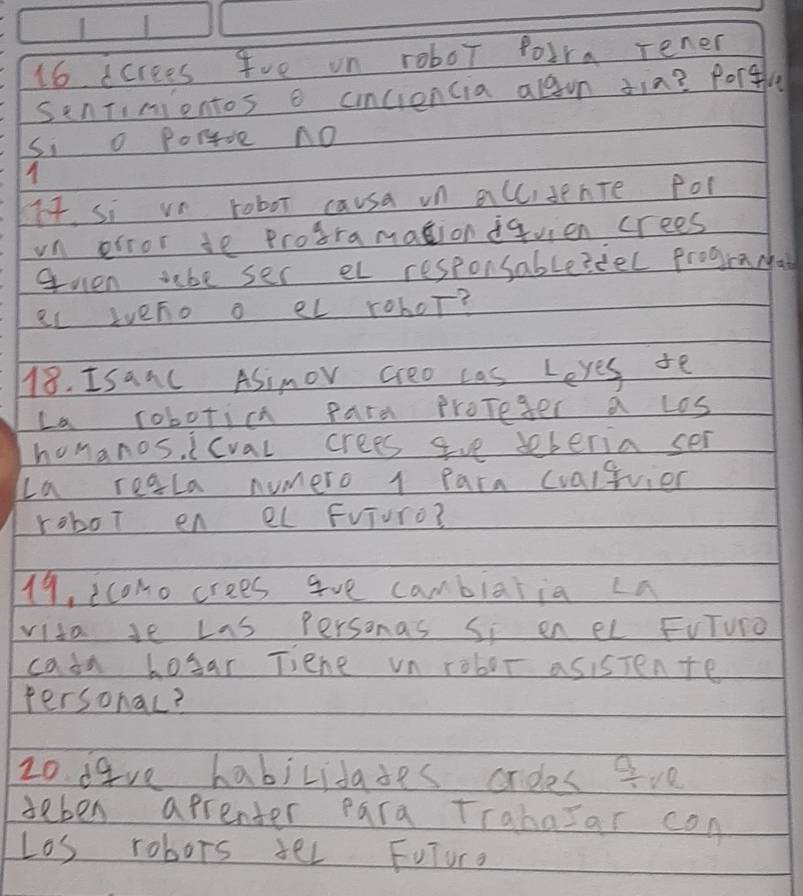 16. ¿crees que un robot podra tener
sentimientos o cinciencia algun dia? Porque
si o porque no
1
17. si un robot causa un accidente por
un error de programacion ¿quien crees
quien debe ser el responsable? del programa
el dueño o el robot?
18. Isaac Asimov creo las Leyes de
La robotica para proteger a los
humanos. ¿cual crees que deberia ser
La regla numero 1 para cualquier
robot en el Futuro?
19. ¿como crees que cambiaria la
vida de las personas si en el Futuro
cada hogar tiene un robot asistente
personal?
20. ¿que habilidades crdes que
deben aprender para Trabajar con
Los robots del Futuro